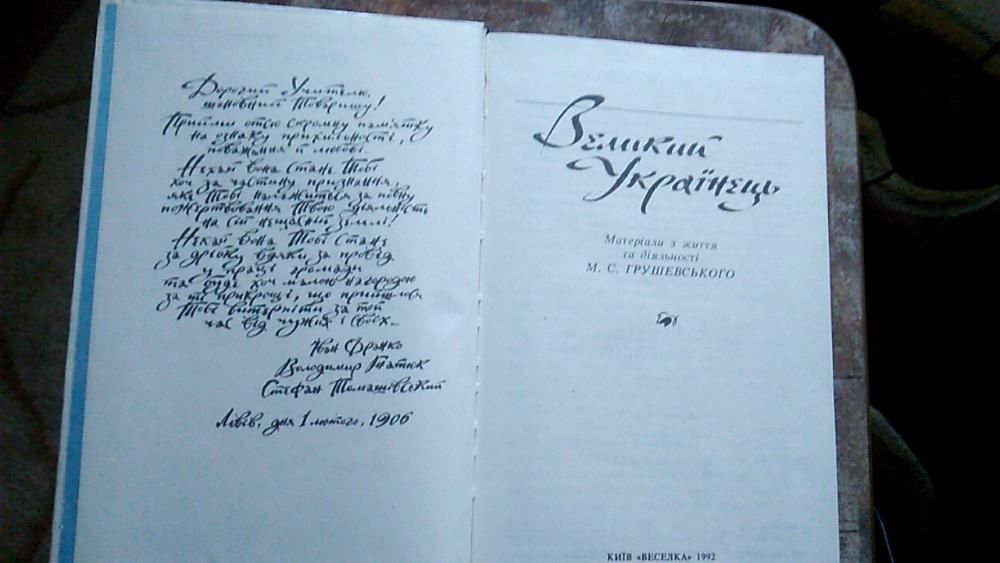 Дорогий Учителю,
шановний Товаришу!
Прийми отсю скромну пам'ятку
на ознаку прихильності,
поважання й любові.
Нехай вона стане Тобі
хоч за частину признання,
яке Тобі належиться за повну
пожертвовання Твою діяльність
на сій нещасній землі!
Нехай вона Тобі стане
за дрібку вдяки за провід
у праці громади
та буде хоч малою нагородою
за ті прикрощі, що прийшлося
Тобі витерпіти за той
час від чужих і своїх...
Іван Франко
Володимир Гнатюк
Стефан Томашівський
Львів, дня 1 лютого, 1906
Великий
Українець
Матеріали з життя
та діяльності
М. С. ГРУШЕВСЬКОГО
КИЇВ «ВЕСЕЛКА» 1992